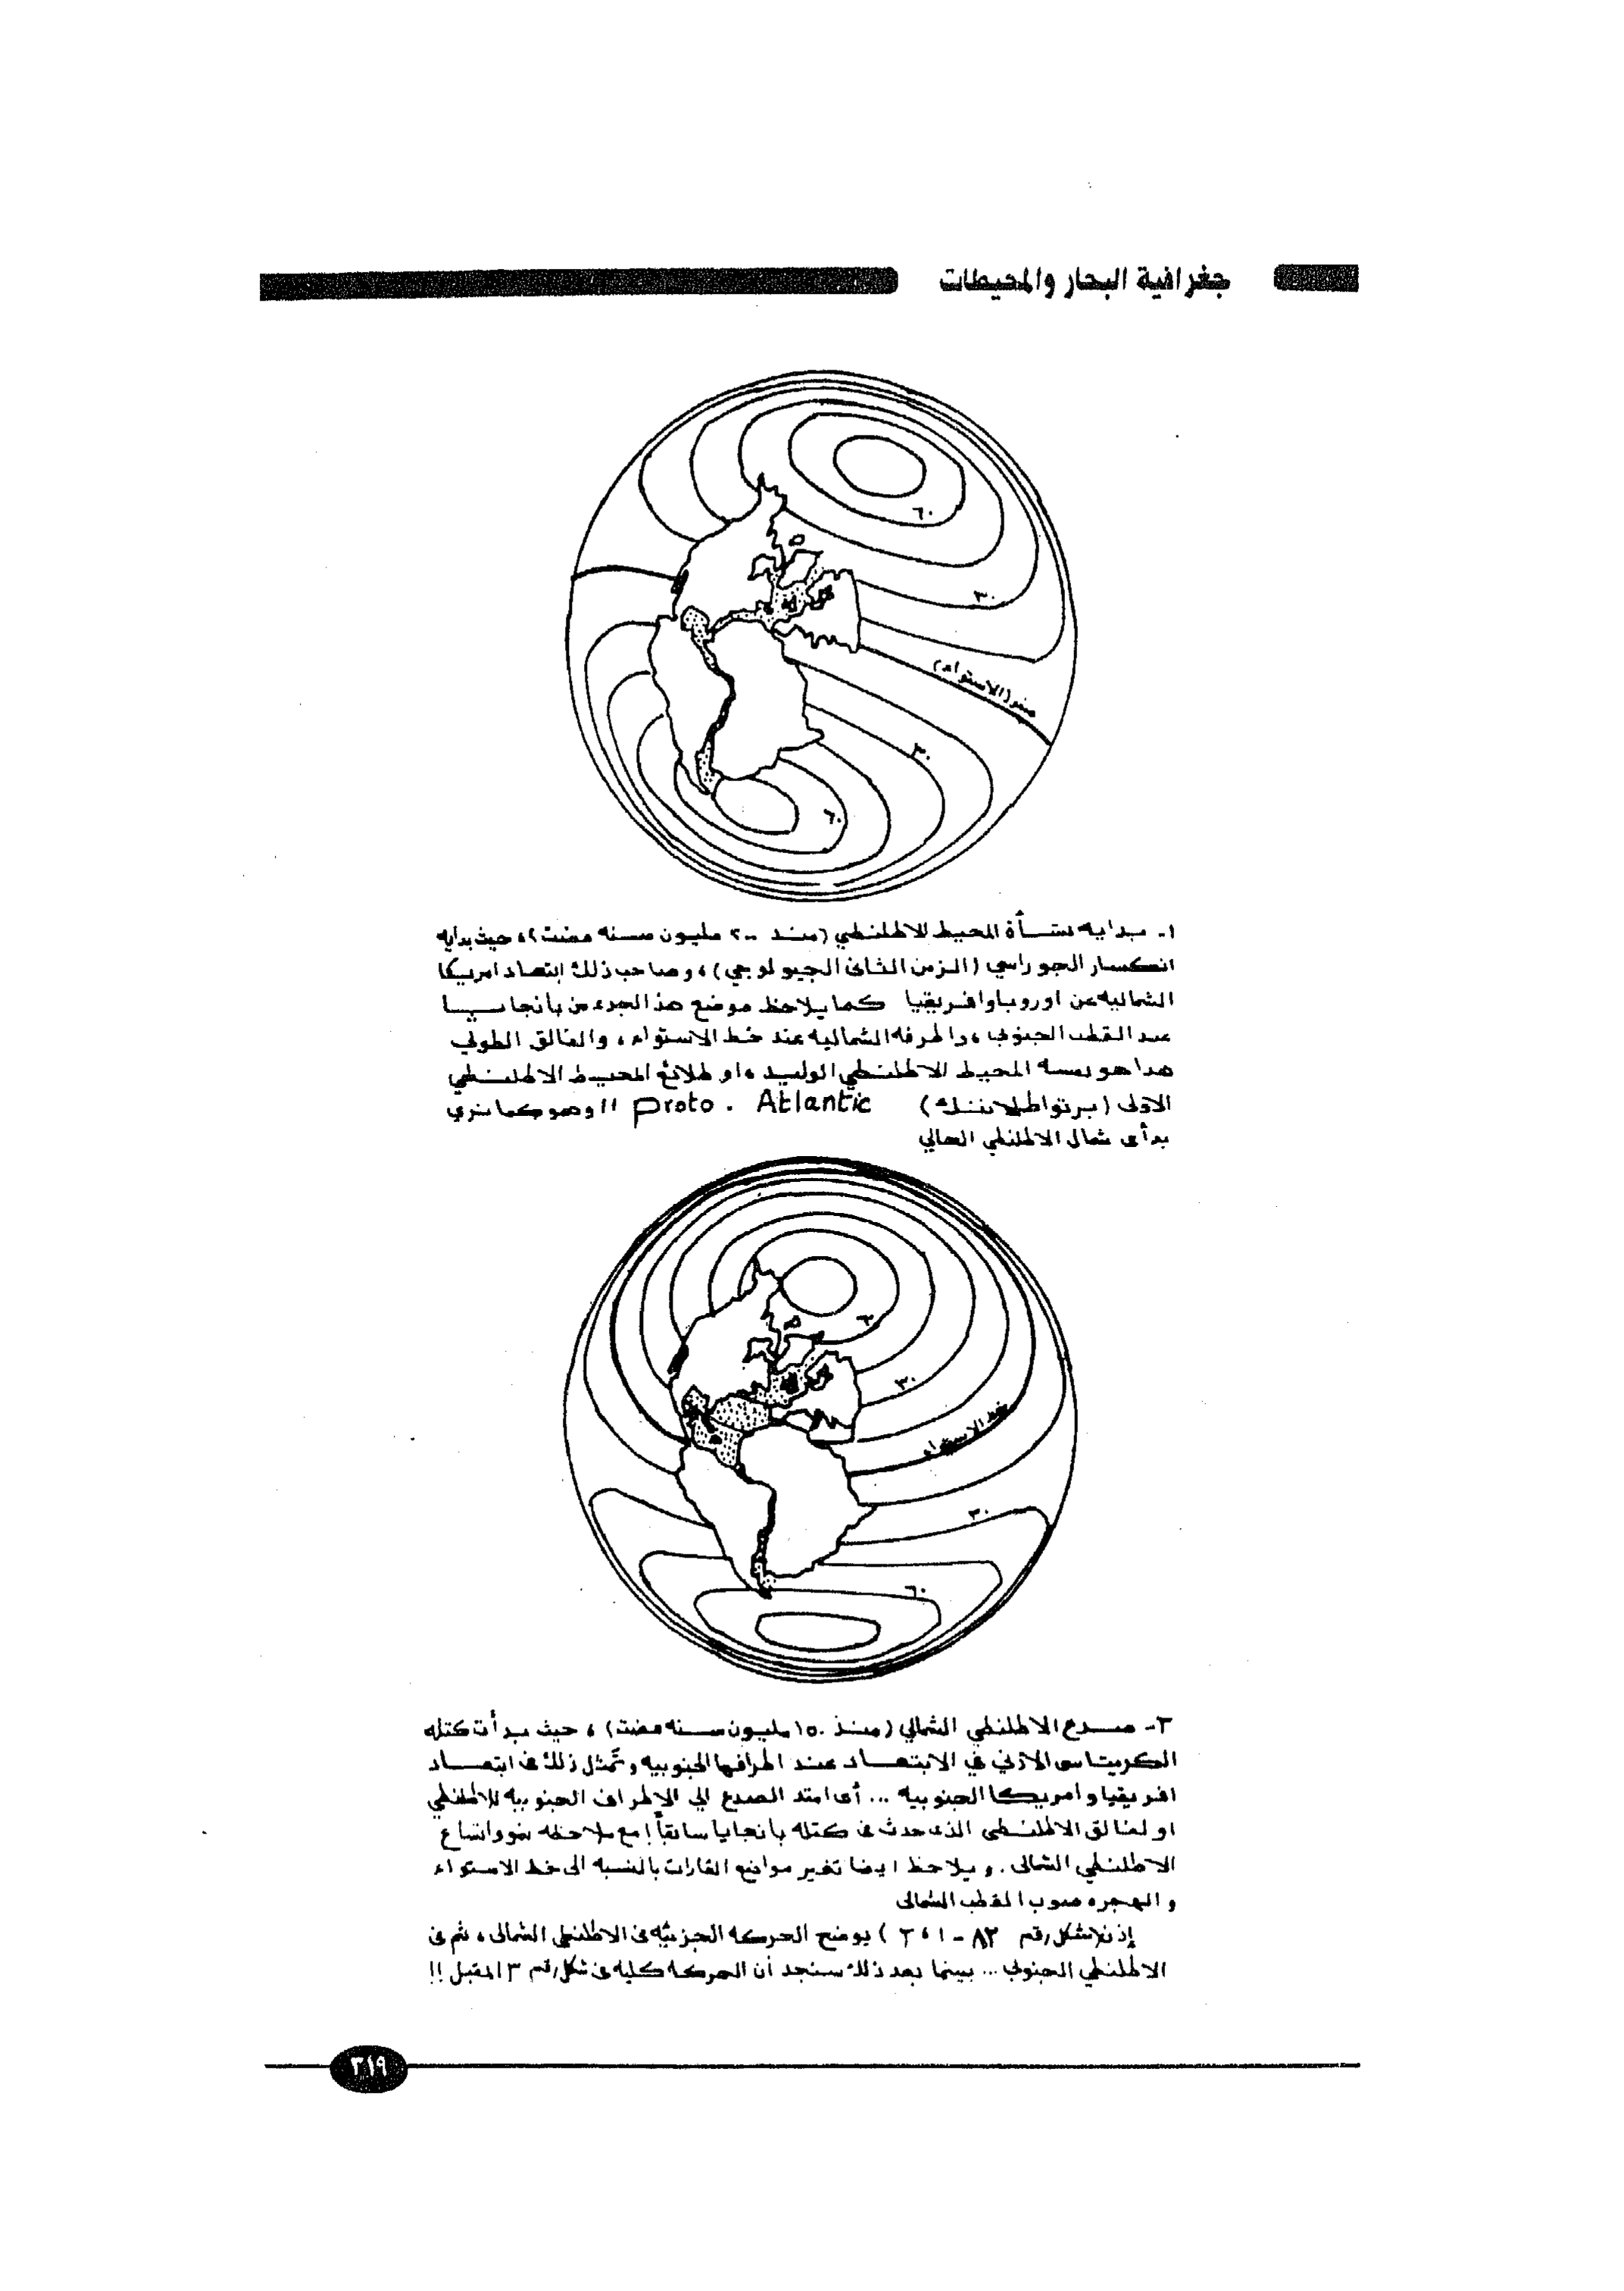 جغرافية البحار والمحيطات
٦٠
٣٠
صفر (الاستواء)
٣٠
٦٠
١- بدايه نشأة المحيط الاطلنطي (منذ ٢٠٠ مليون سنه مضت)، حيث بدايه
انكسار الجوراسي (الزمن الثانى الجيولوجي)، وصاحب ذلك ابتعاد امريكا
الشماليه عن اوروبا وافريقيا كما يلاحظ موضع هذا الجزء من بانجاسيا
عند القطب الجنوبى، واطرفه الشماليه عند خط الاستواء، والفالق الطولي
هذا هو نفسه المحيط الاطلنطي الوليد، او طلائع المحيط الاطلنطي
الاولى (برتواطلانتك) Proto. Atlantic !! وهو كما نري
بدأ فى شمال الاطلنطي الحالي
٦٠
٣٠
خط الاستواء
٣٠
٦٠
٢- صدع الاطلنطي الشمالي (منذ ١٥٠ مليون سنه مضت)، حيث بدأت كتله
الكريتاسى الادني في الابتعاد عند اطرافها الجنوبيه وتمثل ذلك فى ابتعاد
افريقيا وامريكا الجنوبيه ... أى امتد الصدع الي الاطراف الجنوبيه للاطلنطي
او لفالق الاطلنطى الذى حدث فى كتله بانجايا سابقاً! مع ملاحظه نمو واتساع
الاطلنطي الشمالى. ويلاحظ ايضا تغير مواضع القارات بالنسبه الى خط الاستواء
والهجره صوب القطب الشمالى
إذن فالشكل رقم ٨٢ - ١، ٢) يوضح الحركه الجزئيه فى الاطلنطي الشمالى، ثم فى
الاطلنطي الجنوبى ... بينما بعد ذلك سنجد أن الحركه كليه فى شكل رقم ٣ المقبل !!
٣١٩